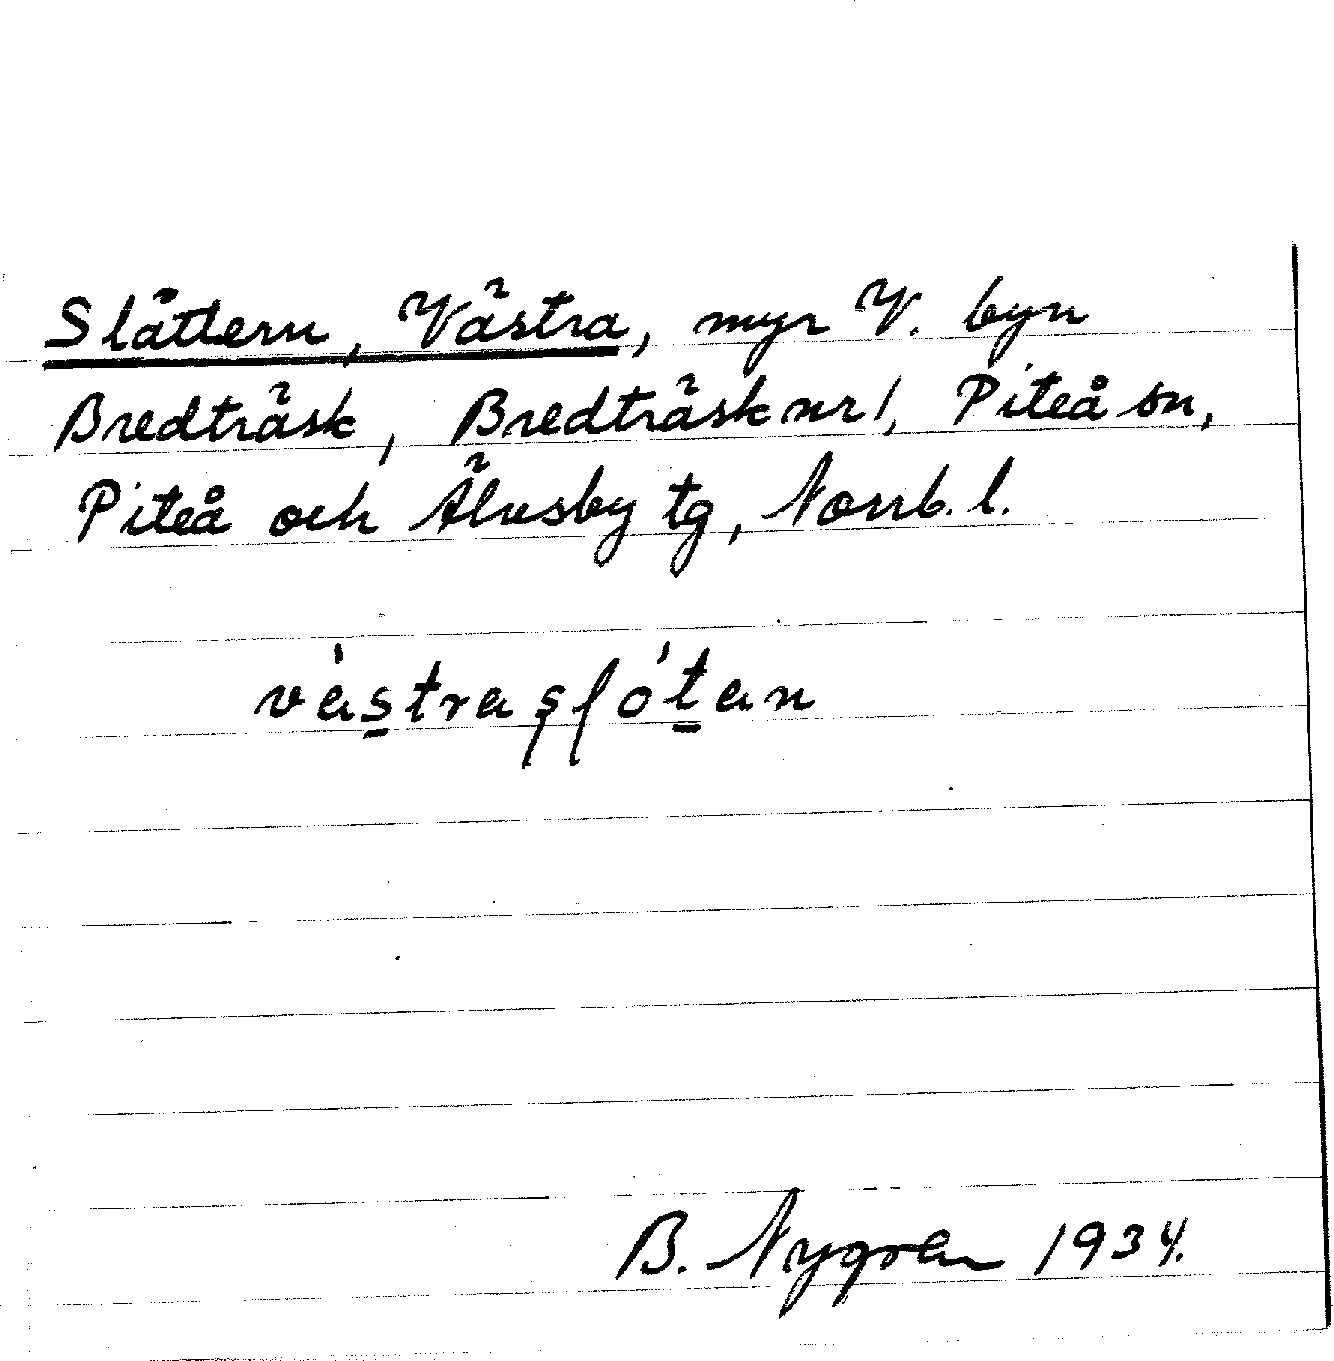 Slåttern, Västra, myr V. byn
Bredträsk, Bredträsk nr 1, Piteå sn,
Piteå och Älvsby tg, Norrb. l.
B. Nygren 1934.